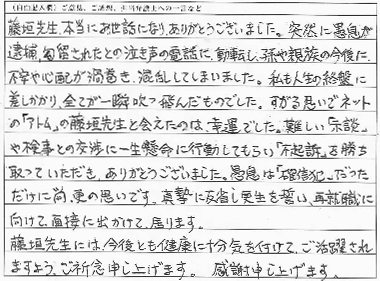 （自由記入欄）ご意見、ご感想、担当弁護士への一言など
藤垣先生、本当にお世話になり、ありがとうございました。突然に愚息が
逮捕、勾留されたとの泣き声の電話に、動転し、孫や親族の今後に、
不安や心配が渦巻き、混乱してしまいました。私も人生の終盤に
差しかかり、全てが一瞬吹っ飛んだものでした。すがる思いでネット
の「アトム」の藤垣先生と会えたのは、幸運でした。難しい「示談」
や検事との交渉に一生懸命に行動してもらい「不起訴」を勝ち
取っていただき、ありがとうございました。愚息は「確信犯」だった
だけに尚、更の思いです。真摯に反省し更生を誓い、再就職に
向けて、面接に出かけて、居ります。
藤垣先生には、今後とも健康に十分気を付けて、ご活躍され
ますよう、ご祈念申し上げます。 感謝申し上げます。